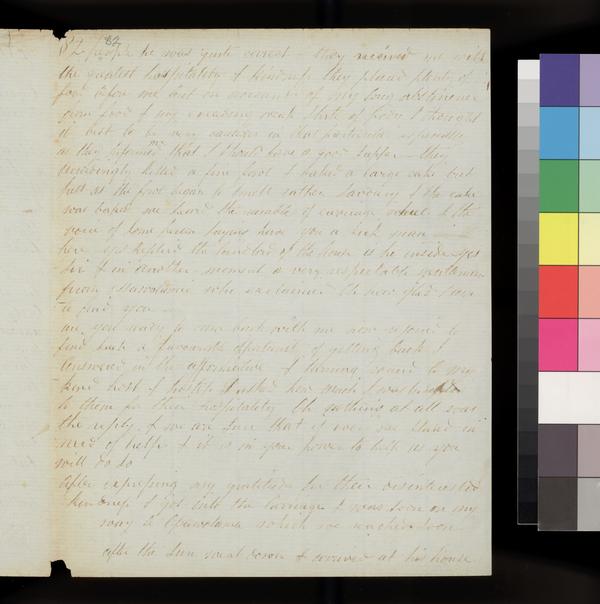 82 people he was quite correct - they received me with
the greatest hospitality & kindness they placed plenty of
food before me but on account of my long abstinence
from food & my exceeding weak state of body I thought
it best to be very cautious in that particular especially
as they informed me that I should have a good supper - they
accordingly killed a fine fowl & baked a large cake but
just as the fowl began to smell rather savoury & the cake
was baked we heard the rumble of carriage wheels & the
voice of some person saying have you a sick man
here yes replied the landlord of the house is he inside yes
Sir & in another moment a very respectable gentleman
from who exclaimed Oh how glad I am
to find you
are you ready to come back with me now rejoiced to
find such a favourable opportunity of getting back I
answered in the affirmative & turning round to my
kind host & hostess I asked how much I was
to them for their hospitality Oh nothing at all was
the reply & we are sure that if ever we stand in
need of help & it is in your power to help us you
will do so
After expressing my gratitude for their disinterested
kindness I got into the carriage & was soon on my
way to Opawolama which we reached soon
after the Sun went down & arrived at his house